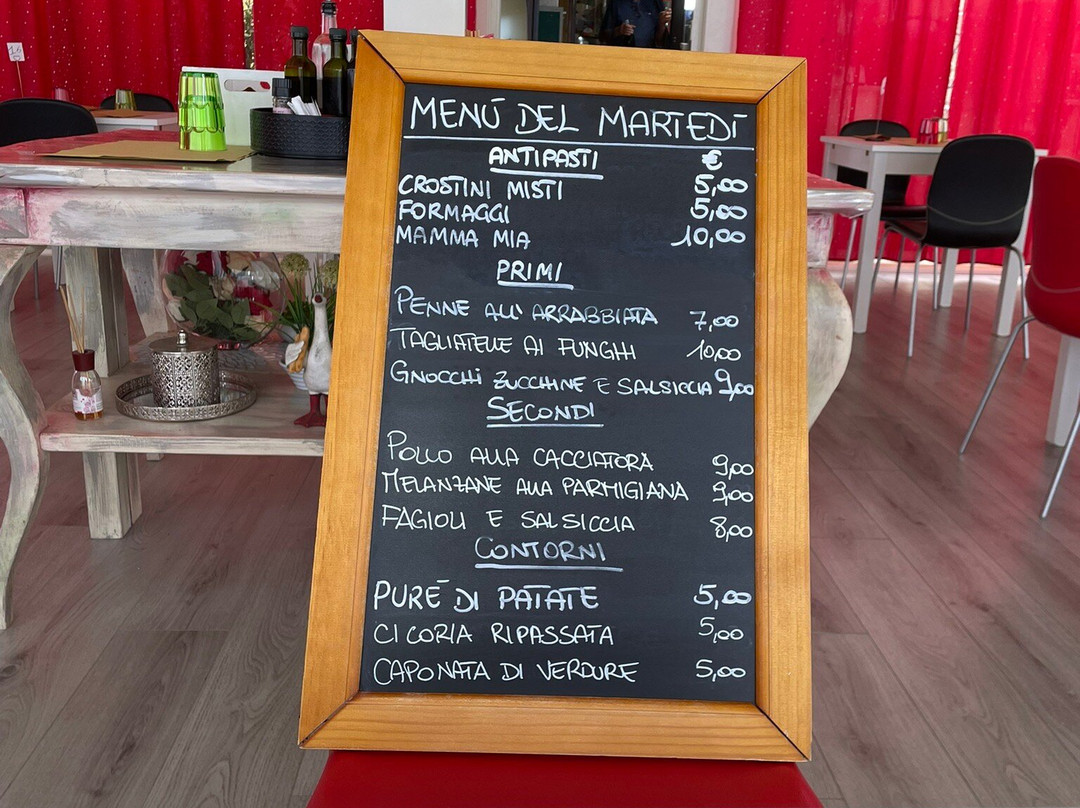 MENÙ DEL MARTEDÌ
ANTIPASTI €
CROSTINI MISTI 5,00
FORMAGGI 5,00
MAMMA MIA 10,00
PRIMI
PENNE ALL'ARRABBIATA 7,00
TAGLIATELLE AI FUNGHI 10,00
GNOCCHI ZUCCHINE E SALSICCIA 9,00
SECONDI
POLLO ALLA CACCIATORA 9,00
MELANZANE ALLA PARMIGIANA 9,00
FAGIOLI E SALSICCIA 8,00
CONTORNI
PURÉ DI PATATE 5,00
CICORIA RIPASSATA 5,00
CAPONATA DI VERDURE 5,00